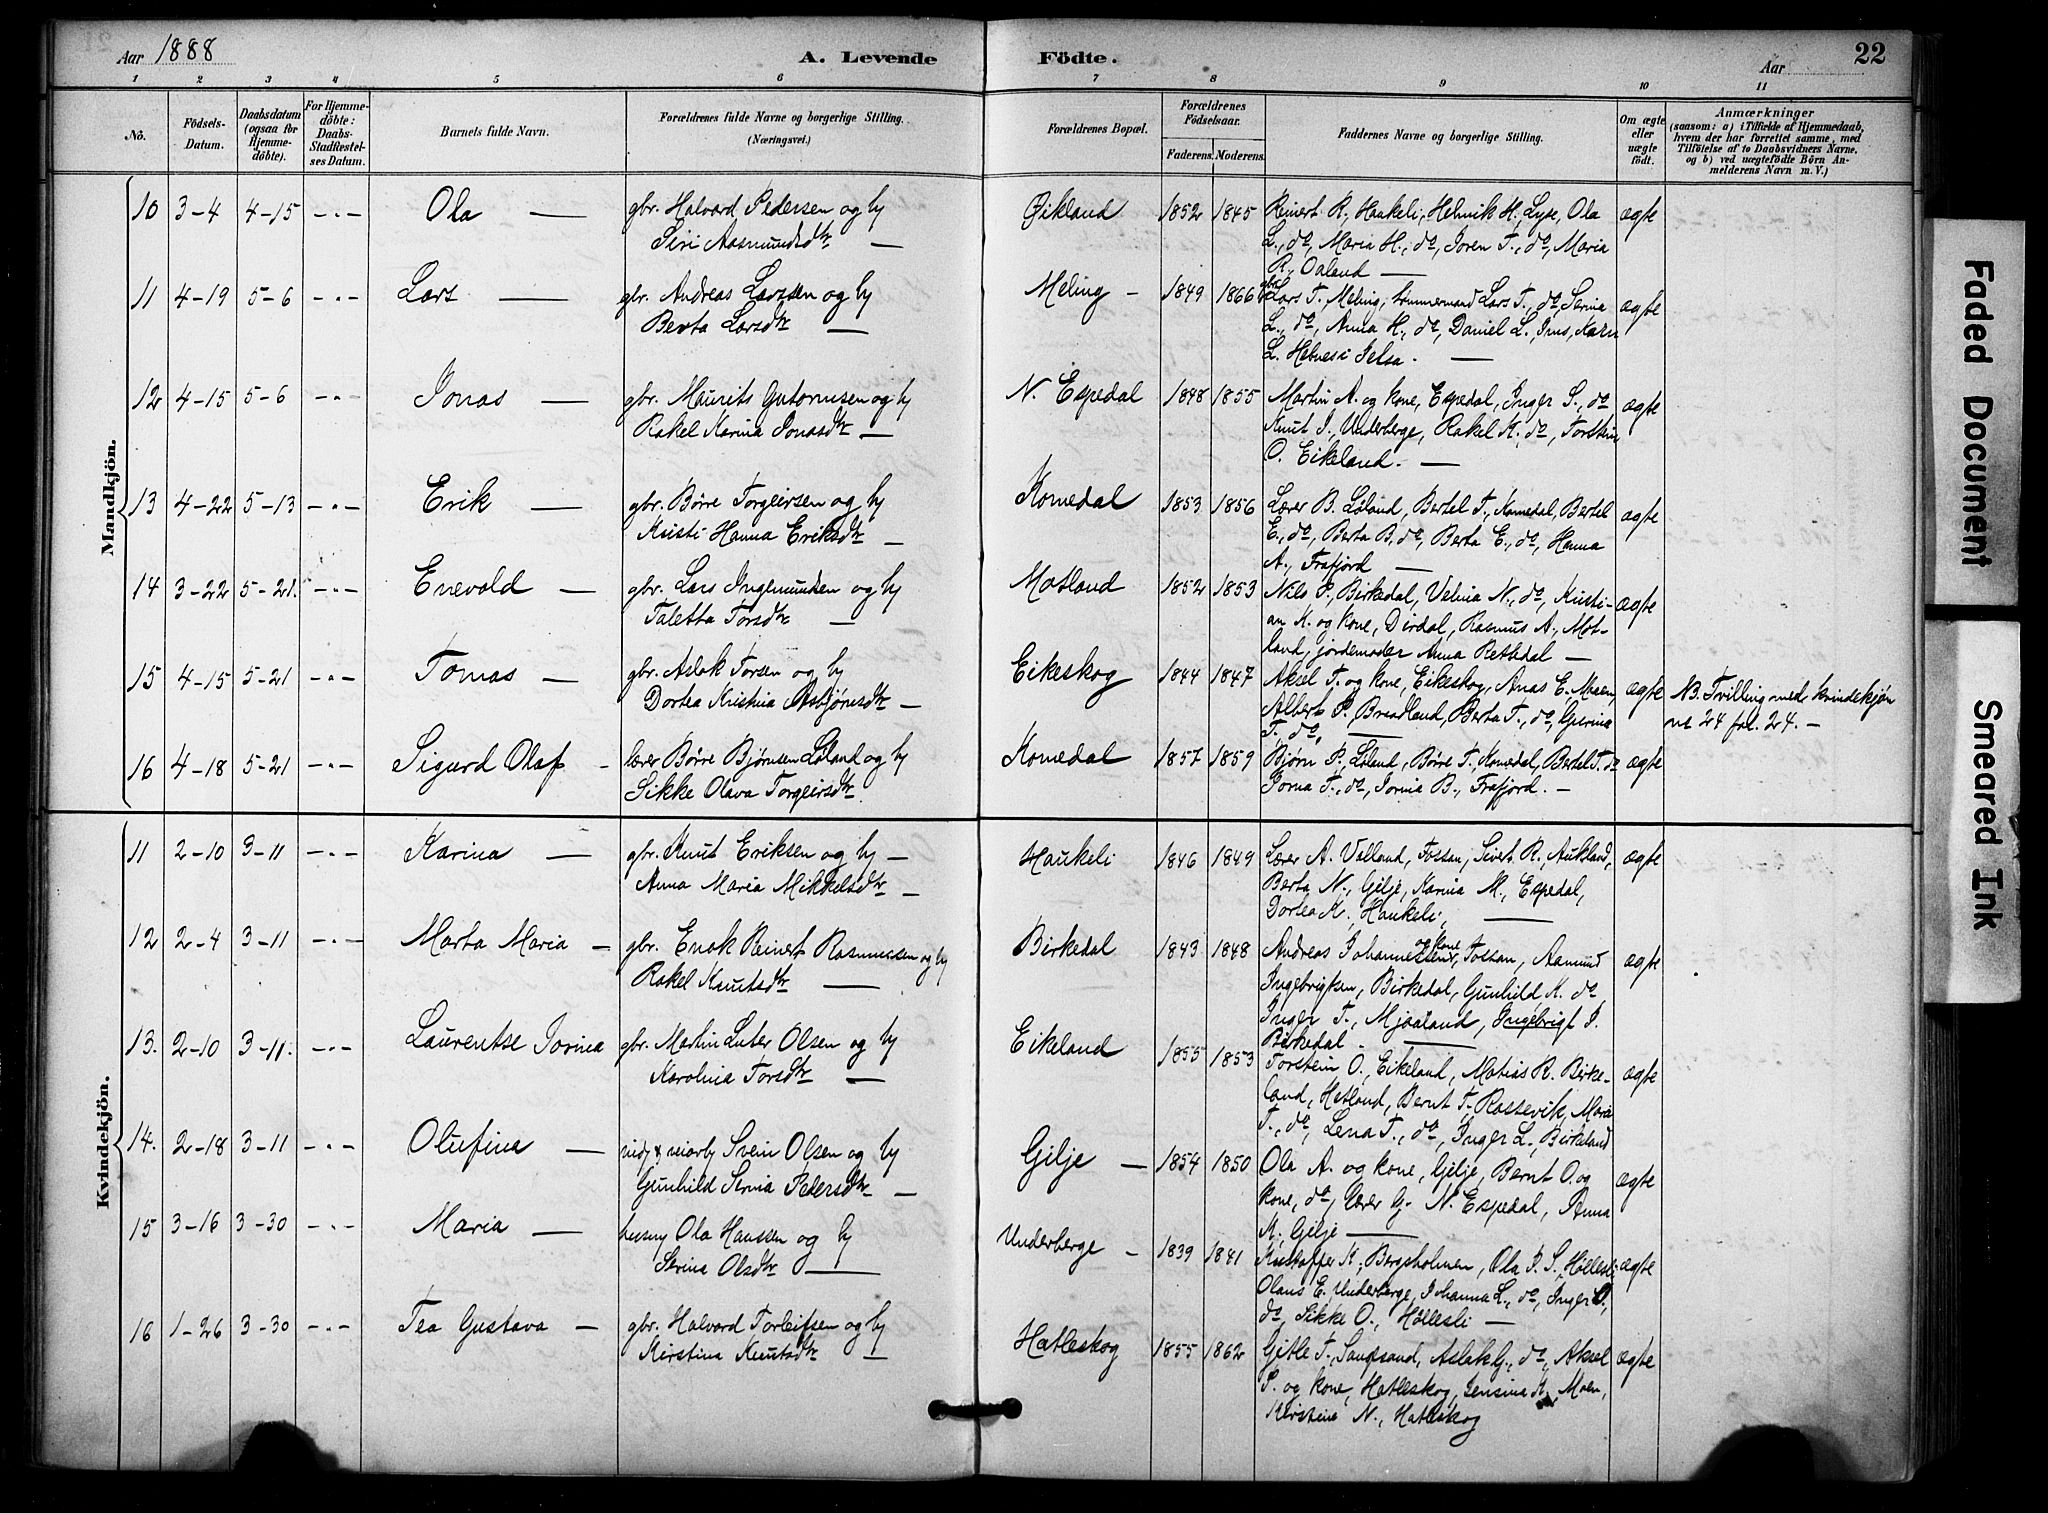 Aar 1888
A. Levende
Födte.
Aar
22
1 2 3 4 5 6 7 8 9 10 11
No.
Födsels-
Datum.
Daabsdatum
(ogsaa for
Hjemme-
döbte).
For Hjemme-
döbte:
Daabs-
Stadfæstel-
ses Datum.
Barnets fulde Navn.
Forældrenes fulde Navne og borgerlige Stilling.
(Næringsvei.)
Forældrenes Bopæl.
Forældrenes
Födselsaar.
Faderens. Moderens.
Faddernes Navne og borgerlige Stilling.
Om ægte
eller
uægte
födt.
Anmærkninger
(saasom: a) i Tilfælde af Hjemmedaab,
hvem der har forrettet samme, med
Tilföielse af to Daabsvidners Navne,
og b) ved uægtefödte Börn An-
melderens Navn m. V.)
Mandkjön.
10 3-4 4-15 -"- Ola — gbr. Halvard Pedersen og hu
Siri Aasmundsdtr —
Øikland 1852 1845 Reinert R. Haukeli, Helmik H. Lyse, Ola
L., do, Maria H., do, Joren T., do, Maria
R., Oaland —
ægte
11 4-19 5-6 -"- Lars — gbr. Andreas Larssen og hu
Berta Larsdtr —
Meling - 1849 1866 gbr. Lars T. Meling, tømmermand Lars T., do, Serina
L., do, Anna H., do, Daniel L. Ims, Karen
L. Hebnes i Jelsa. —
ægte
12 4-15 5-6 -"- Jonas — gbr. Maurits Gutormsen og hu
Rakel Karina Jonasdtr —
N. Espedal 1848 1855 Martin A. og kone, Espedal, Inger S., do
Knut J., Underberge, Rakel K., do, Torstein
O. Eikeland. —
ægte
13 4-22 5-13 -"- Erik — gbr. Børre Torgeirsen og hu
Kristi Hanna Eriksdtr —
Komedal 1853 1856 Lærer B. Løland, Bertel T., Komedal, Bertel
E., do, Berta B. do, Berta E., do, Hanna
A., Frafjord —
ægte
14 3-22 5-21. -"- Enevold — gbr. Lars Ingemundsen og hu
Taletta Torsdtr —
Motland 1852 1853 Nils P., Birkedal, Velina N., do, Kristi-
an K. og kone, Dirdal, Rasmus A., Mot-
land, jordemoder Anna Retledal —
ægte
15 4-15 5-21 -"- Tomas — gbr. Aslak Torsen og hu
Dortea Kristina Asbjørnsdtr —
Eikeskog 1844 1847 Aksel T. og kone, Eikeskog, Anas E. Moen,
Albert P. Breidland, Berta T., do, Gurina
T., do, —
ægte
NB. Tvilling med kvindekjøn
no 24 fol. 24. —
16 4-18 5-21 -"- Sigurd Olaf - lærer Børre Bjørnsen Løland og hu
Sikke Olava Torgeirsdtr.
Komedal 1857 1859 Bjørn P. Løland, Børre T., Komedal, Bertel T. do
Jorna T., do, Jorina B., Frafjord. —
ægte
Kvindekjön.
11 2-10 3-11 -"- Karina — gbr. Knut Eriksen og hu —
Anna Maria Mikkelsdtr —
Haukeli 1846 1849 Lærer A. Valland, Fossan, Sivert R., Aukland,
Berta N., Gilje, Karina M., Espedal,
Dortea K., Haukeli, —
ægte
12 2-4 3-11 -"- Marta Maria - gbr. Enok Reinert Rasmussen og hu
Rakel Knutsdtr —
Birkedal 1843 1848 Andreas Johannessen og kone, Fossan, Aamund
Ingebrigtsen, Birkedal, Gunhild K. do
Inger T., Mjaaland, Ingebrigt J.
Birkedal —
ægte
13. 2-10 3-11. -"- Laurentse Jorina gbr. Martin Luter Olsen og hu
Karolina Torsdtr —
Eikeland 1855 1853 Torstein O., Eikeland, Matias R. Birke-
land, Hetland, Bernt T. Rossevik, Maria
T., do, Lena T., do, Inger L., Birkeland
ægte
14. 2-18 3-11 -"- Olufina — Svein Olsen og hu
Gunhild Serina Pedersdtr —
Gilje — 1854 1850 Ola A. og kone, Gilje, Bernt O. og
kone, do, lærer G. N. Espedal, Anna
K. Gilje —
ægte
15 3-16 3-30 -"- Maria — husmd Ola Hanssen og hu
Serina Olsdtr —
Underberge - 1839 1841 Kristoffer K., Bergsholmen, Ola P. S., Høllesli
Olaus E. Underberge, Johanna L., do, Inger O.,
do, Sikke O., Høllesli —
ægte
16 1-26 3-30 -"- Tea Gustava - gbr. Halvard Torleifsen og hu
Kirstina Knutsdtr —
Hatleskog 1855 1862 Gitle T., Sandsand, Aslak G., do, Aksel
P. og kone, Hatleskog, Jensina K., Moen,
Kirstine N., Hatleskog
ægte
Faded Document
Smeared Ink